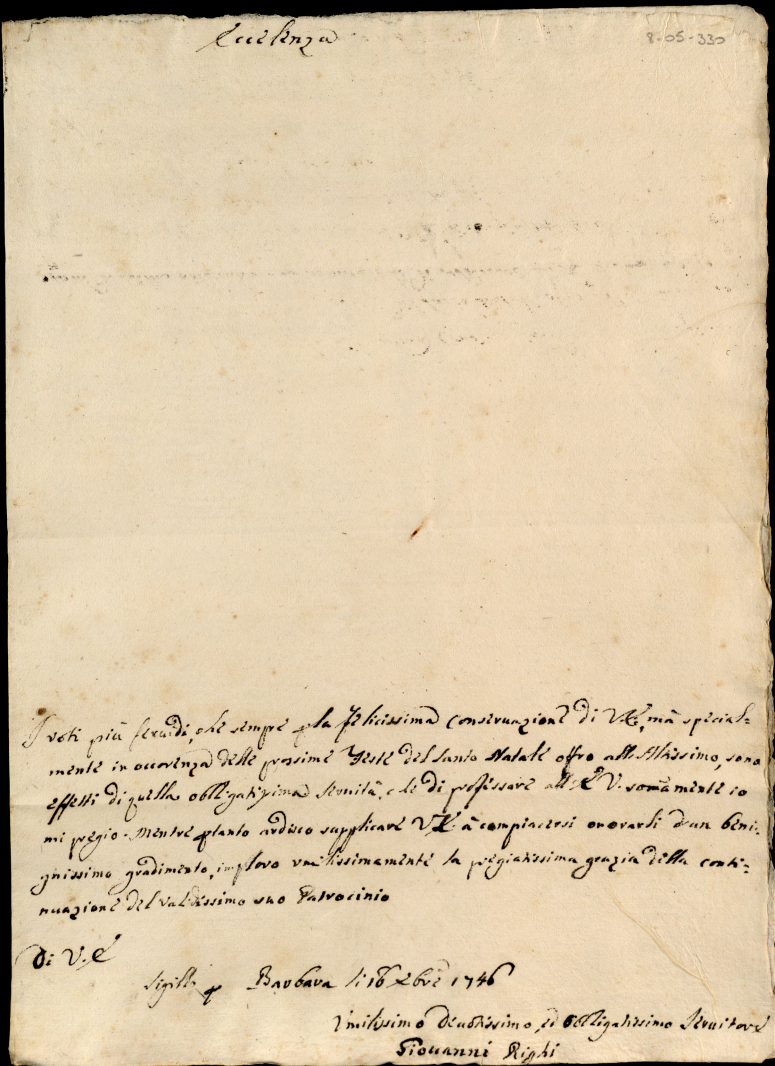 8-05-330
Eccellenza
I voti più feruidi, che sempre p la felicissima conseruazione di V.E, mà special=
mente in occorenza delle prossime Feste del Santo Natale offro all'Altissimo, sono
effetti di quella obligatissima Seruitù, che di professare all'E V. somamente io
mi pregio. Mentre p tanto ardisco supplicare V.E à compiacersi onorarli d'un beni=
gnissimo gradimento, imploro vmilissimamente la pregiatissima grazia della conti=
nuazione del validissimo suo Patrocinio
Di V.E
Sigill p Barbara li 16 Xbre 1746
Vmilissimo Deuotissimo, ed obligatissimo Seruitore
Giouanni Righi